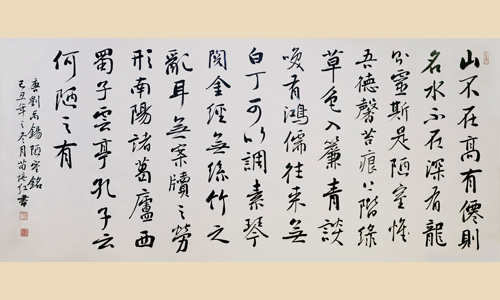 山不在高有僊則
名水不在深有龍
則靈斯是陋室惟
吾德馨苔痕上階綠
草色入簾青談
咲有鴻儒往來無
白丁可以調素琴
閱金經無絲竹之
亂耳無案牘之勞
形南陽諸葛廬西
蜀子雲亭孔子云
何陋之有
唐劉禹錫陋室銘
己丑年之冬月苗培红書